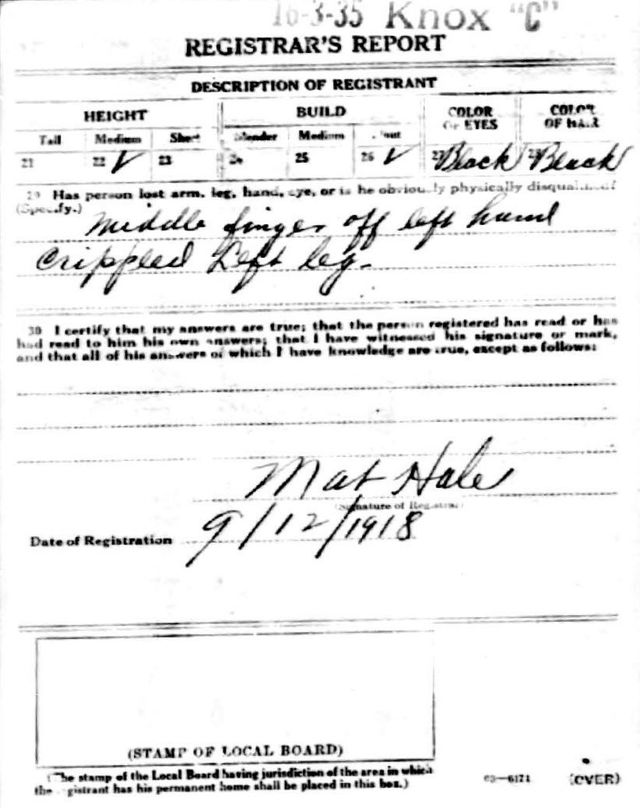 16-3-35 Knox "C"
REGISTRAR'S REPORT
DESCRIPTION OF REGISTRANT
HEIGHT BUILD COLOR OF EYES COLOR OF HAIR
Tall Medium Short Slender Medium Stout
21 22 ✓ 23 24 25 26 ✓ 27 Black 28 Black
29 Has person lost arm, leg, hand, eye, or is he obviously physically disqualified?
(Specify.) Middle finger off left hand
Crippled Left leg.
30 I certify that my answers are true; that the person registered has read or has
had read to him his own answers; that I have witnessed his signature or mark,
and that all of his answers of which I have knowledge are true, except as follows:
Mat Hale
(Signature of Registrar)
Date of Registration 9/12/1918
(STAMP OF LOCAL BOARD)
(The stamp of the Local Board having jurisdiction of the area in which
the registrant has his permanent home shall be placed in this box.)
03—6171 (OVER)